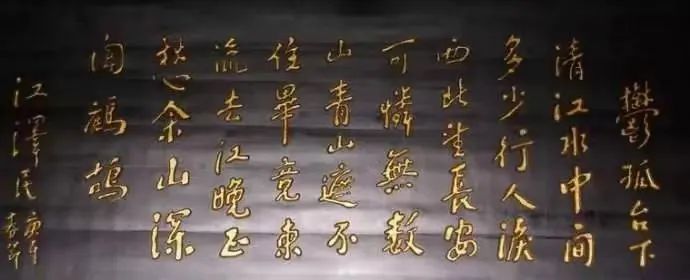 鬱孤台下
清江水中间
多少行人淚
西北望長安
可憐無数
山青山遮不
住畢竟東
流去江晚正
愁余山深
闻鹧鸪
江澤民
庚辰
春节